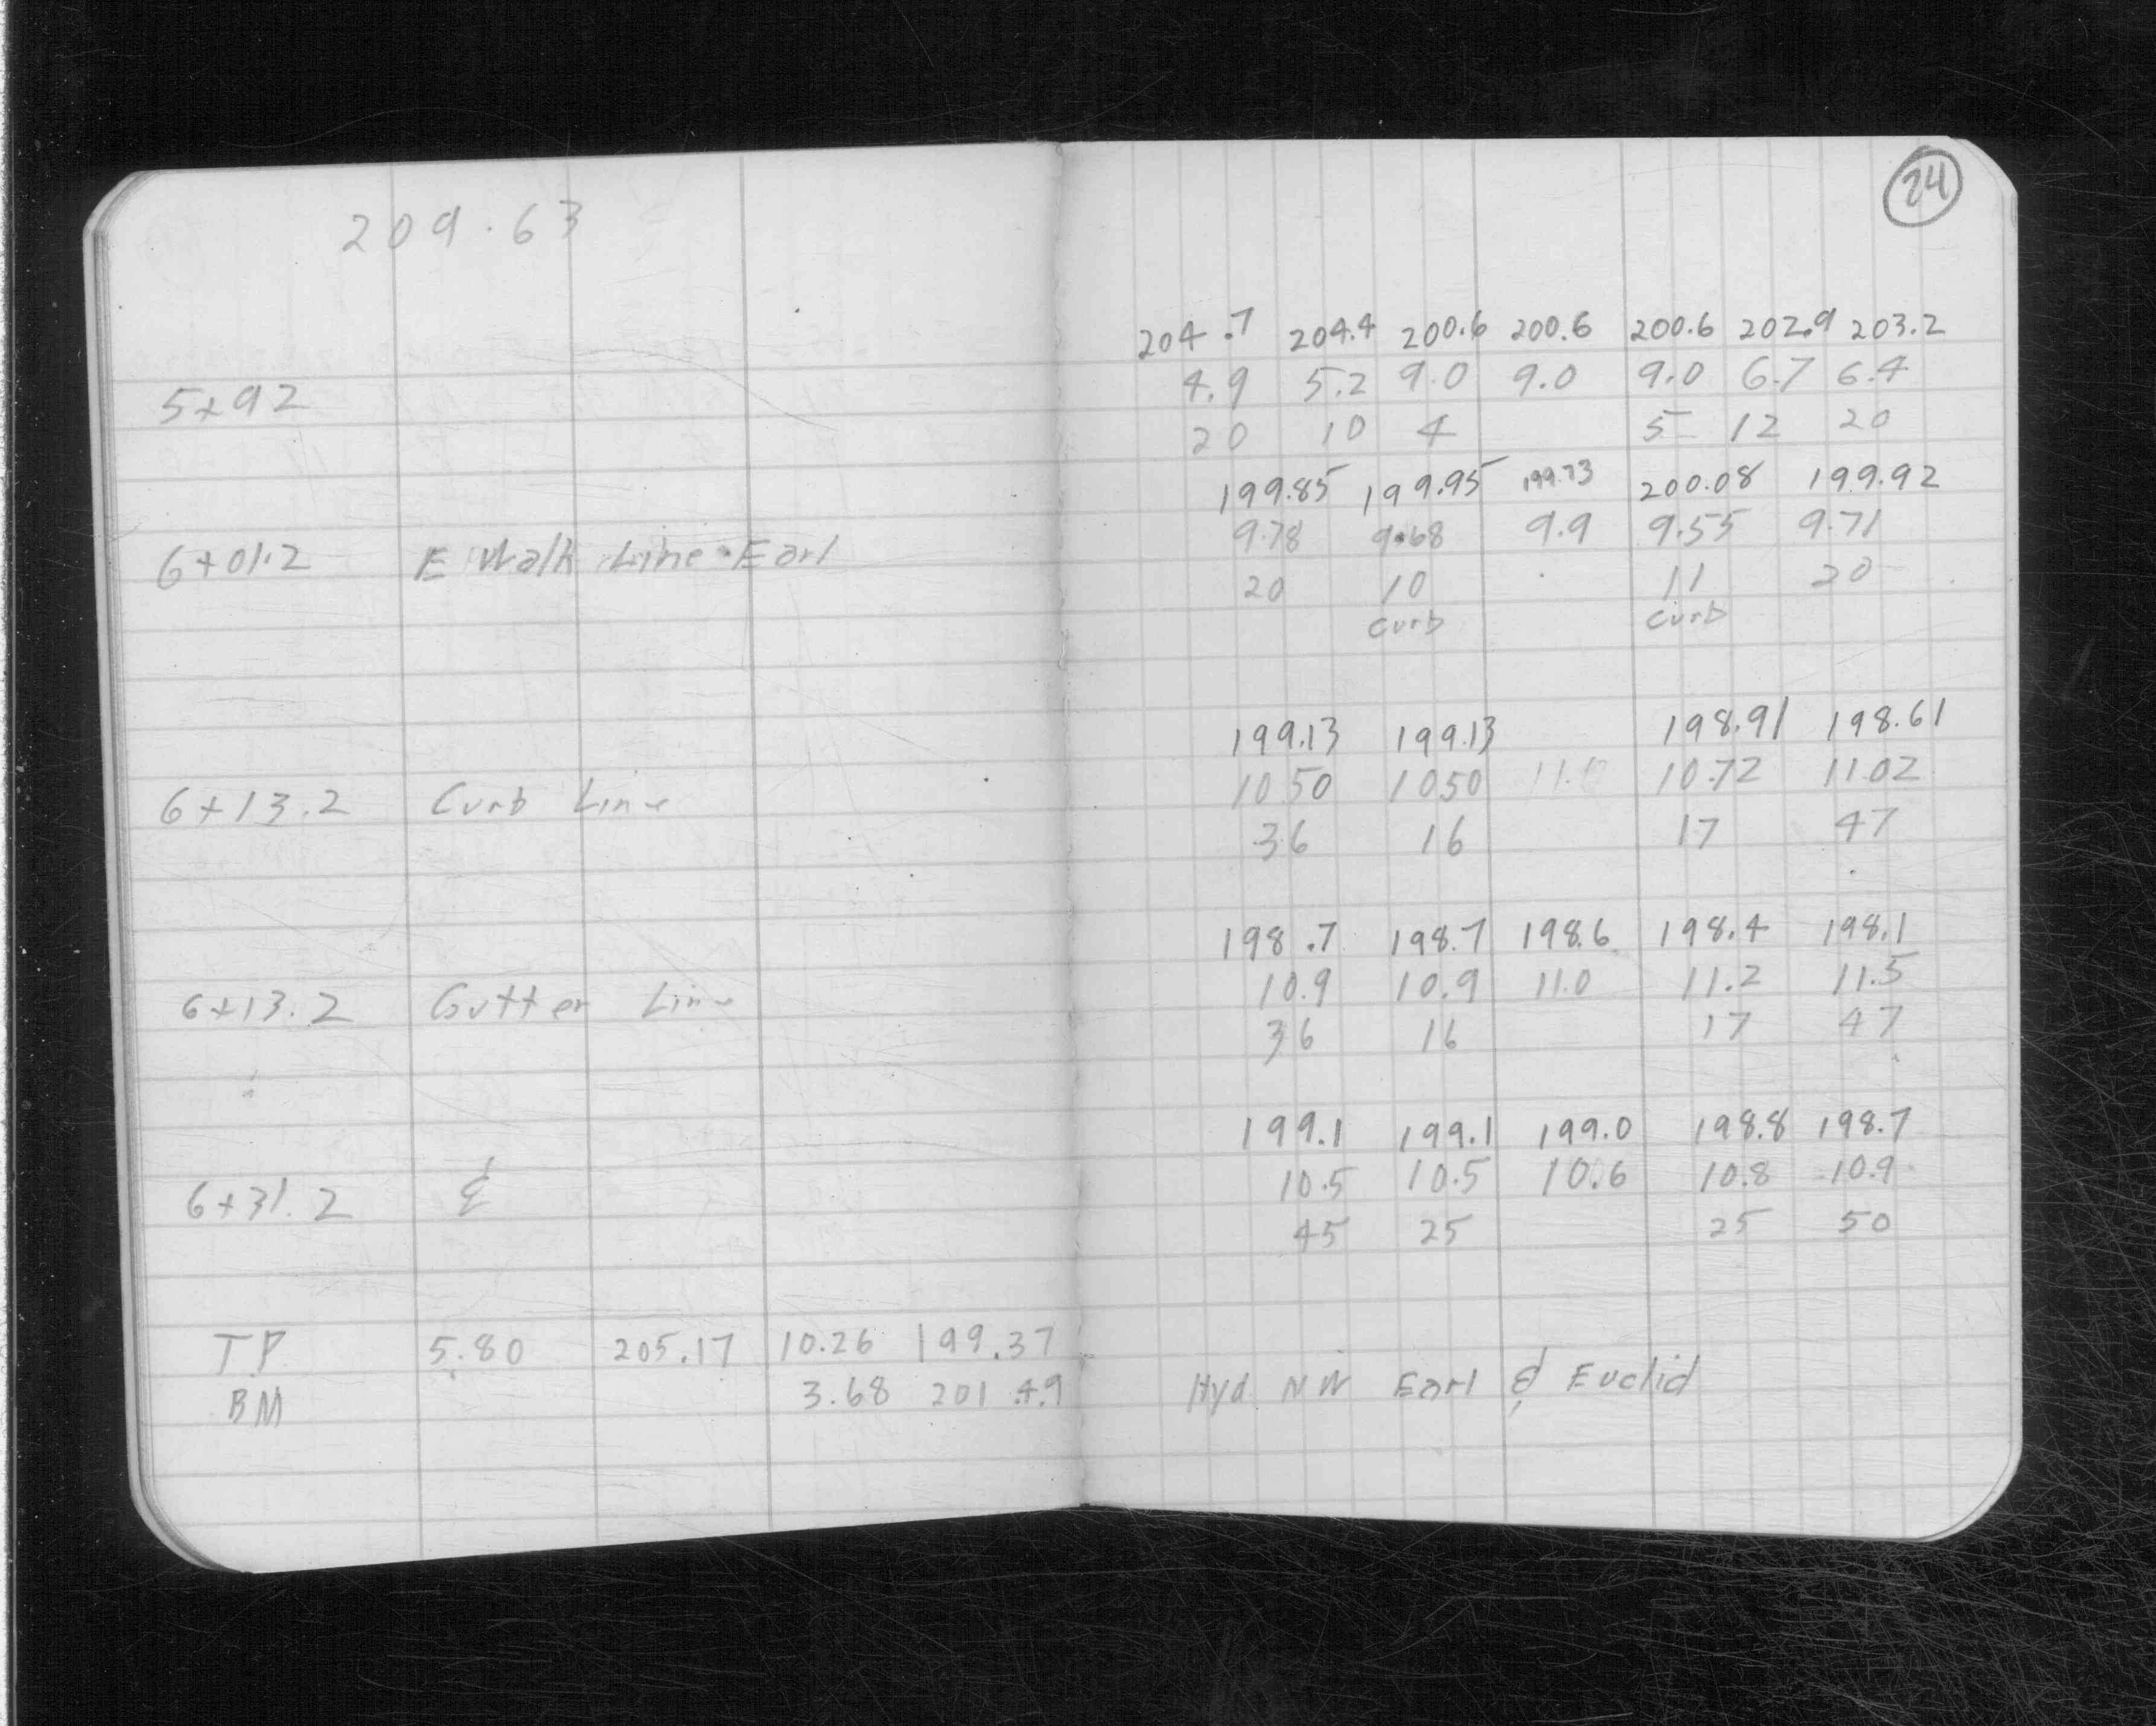 24
209.63
204.7 204.4 200.6 200.6 200.6 202.9 203.2
5+92 4.9 5.2 9.0 9.0 9.0 6.7 6.4
20 10 4 5 12 20
199.85 199.95 199.73 200.08 199.92
6+01.2 E Walk Line Earl 9.78 9.68 9.9 9.55 9.71
20 10 11 20
curb curb
199.13 199.13 198.91 198.61
6+13.2 Curb Line 10.50 10.50 10.72 11.02
36 16 17 47
198.7 198.7 198.6 198.4 198.1
6+13.2 Gutter Line 10.9 10.9 11.0 11.2 11.5
36 16 17 47
199.1 199.1 199.0 198.8 198.7
6+31.2 ℄ 10.5 10.5 10.6 10.8 10.9
45 25 25 50
TP 5.80 205.17 10.26 199.37
BM 3.68 201.49 Hyd NW Earl & Euclid